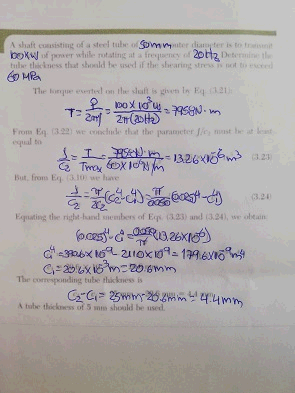 A shaft consisting of a steel tube of 50mm outer diameter is to transmit
100kW of power while rotating at a frequency of 20Hz. Determine the
tube thickness that should be used if the shearing stress is not to exceed
60 MPa.
The torque exerted on the shaft is given by Eq. (3.21):
T = P/2πf = 100×10³W/2π(20Hz) = 795.8N·m
From Eq. (3.22) we conclude that the parameter J/c₂ must be at least
equal to
J/C₂ = T/Tmax = 795.8N·m/60×10⁶N/m² = 13.26×10⁻⁶m³ (3.23)
But, from Eq. (3.10) we have
J/C₂ = π/2C₂(C₂⁴-C₁⁴) = π/0.050[(0.025)⁴-C₁⁴] (3.24)
Equating the right-hand members of Eqs. (3.23) and (3.24), we obtain
(0.025)⁴-C₁⁴ = 0.050/π(13.26×10⁻⁶)
C₁⁴ = 390.6×10⁻⁹ - 211.0×10⁻⁹ = 179.6×10⁻⁹m⁴
C₁ = 20.6×10⁻³m = 20.6mm
The corresponding tube thickness is
C₂-C₁ = 25mm - 20.6mm = 4.4mm
A tube thickness of 5 mm should be used.